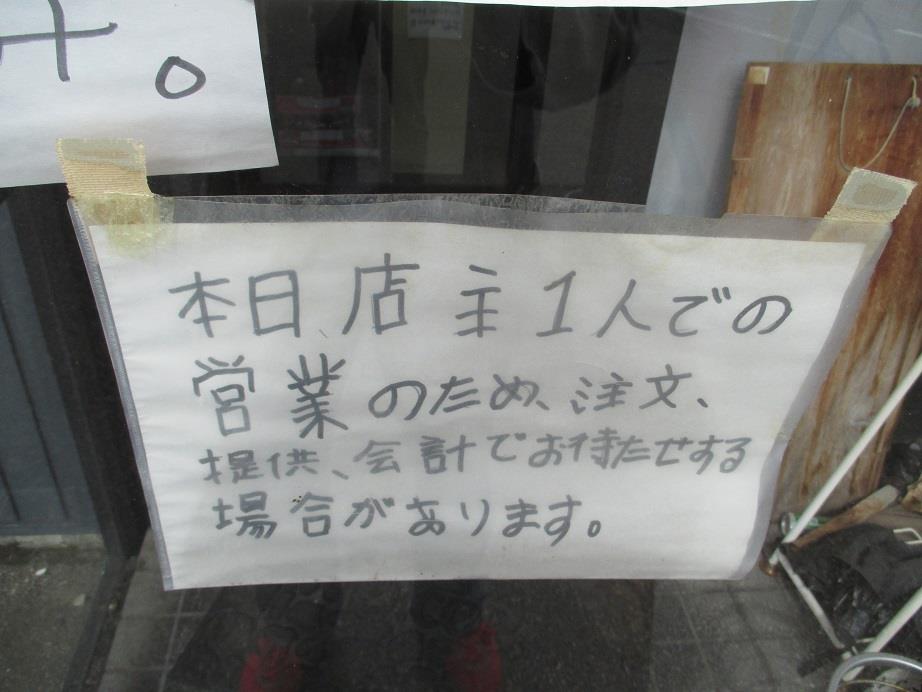 す。
本日店主1人での
営業のため、注文、
提供、会計でお待たせする
場合があります。